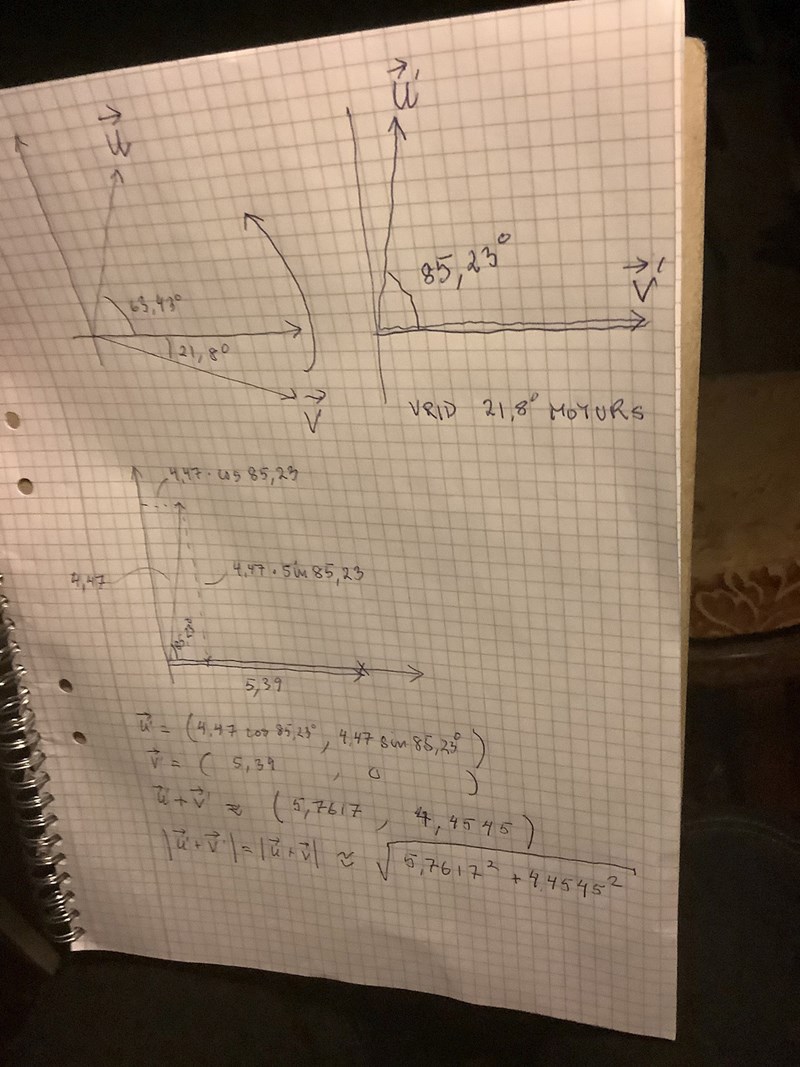 u⃗
63,43°
21,8°
v⃗
u⃗'
85,23°
v⃗'
VRID 21,8° MOTURS
4,47 · cos 85,23
4,47
4,47 · sin 85,23
85,23
5,39
u⃗' = (4,47 cos 85,23°, 4,47 sin 85,23°)
v⃗' = ( 5,39 , 0 )
u⃗' + v⃗' ≈ (5,7617 , 4,4545)
|u⃗' + v⃗'| = |u⃗ + v⃗| ≈ √5,7617² + 4,4545²